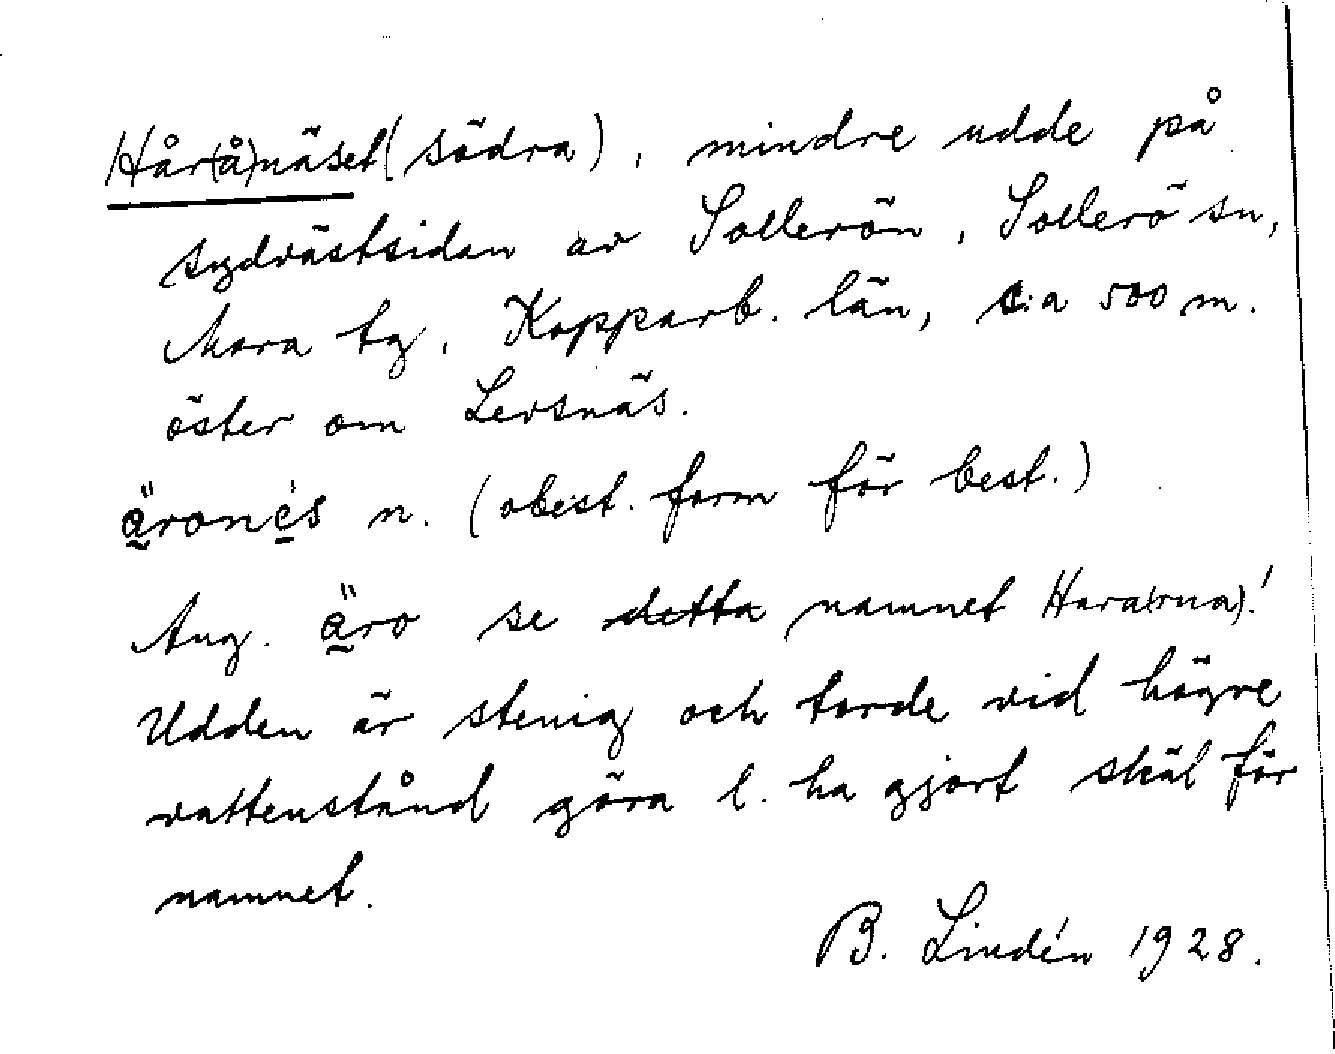 Hår(å)näset (södra), mindre udde på
sydvästsidan av Sollerön, Sollerö sn,
Mora tg, Kopparb. län, c:a 500 m.
öster om Levsnäs.
äronès n. (obest. form för best.)
Ang. äro se detta namnet Hara(rna)!
Udden är stenig och torde vid högre
vattenstånd göra l. ha gjort skäl för
namnet.
B. Lindén 1928.